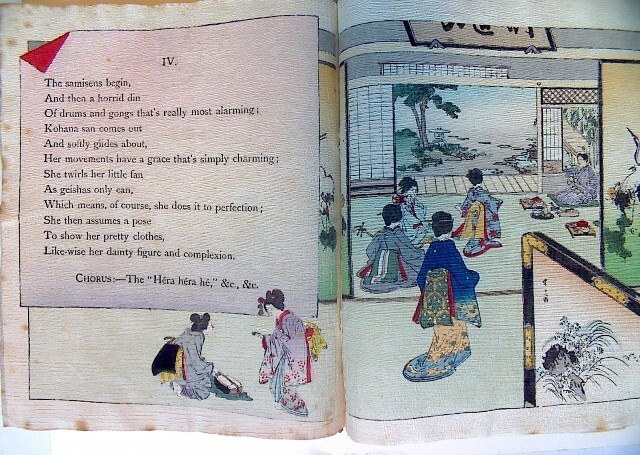 IV.
The samisens begin,
And then a horrid din
Of drums and gongs that's really most alarming;
Kohana san comes out
And softly glides about,
Her movements have a grace that's simply charming;
She twirls her little fan
As geishas only can,
Which means, of course, she does it to perfection;
She then assumes a pose
To show her pretty clothes,
Like-wise her dainty figure and complexion.
CHORUS:—The "Héra héra hé," &c., &c.